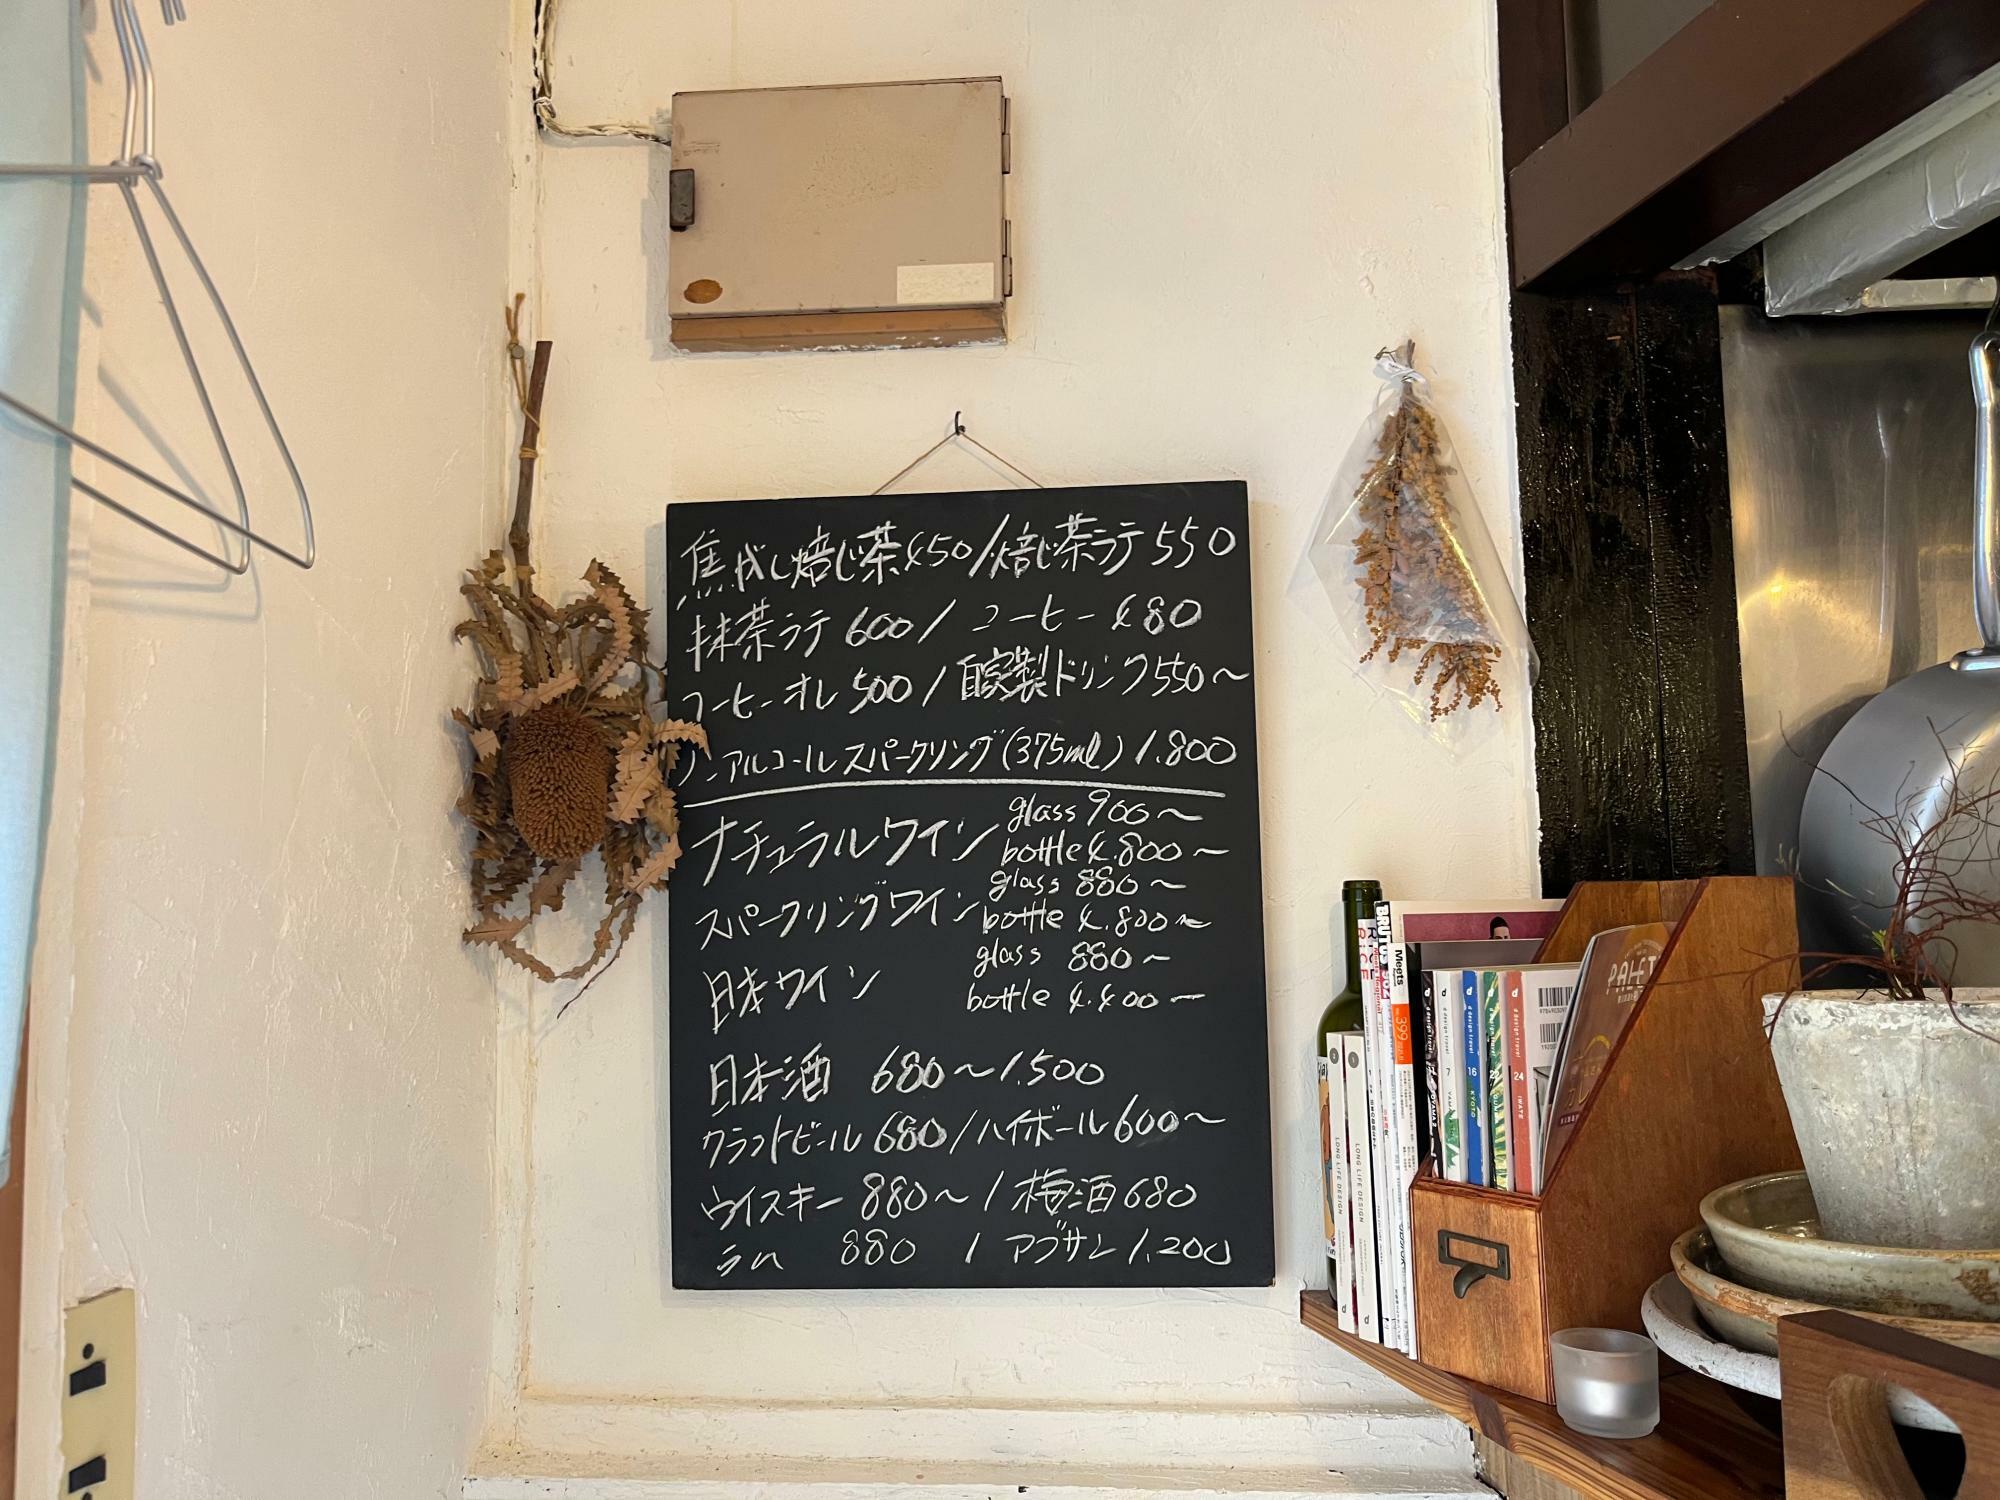 焦がし焙じ茶450/焙じ茶ラテ550
抹茶ラテ 600/コーヒー 480
コーヒーオレ 500/自家製ドリンク550〜
ノンアルコールスパークリング(375ml)1.800
ナチュラルワイン glass 900〜
bottle 4.800〜
スパークリングワイン glass 880〜
bottle 4.800〜
日本ワイン glass 880〜
bottle 4.400〜
日本酒 680〜1.500
クラフトビール 680/ハイボール 600〜
ウイスキー 880〜/梅酒 680
ラム 880 / アブサン 1.200
BRUTUS
RICE
Meets
399
LONG LIFE DESIGN
LONG LIFE DESIGN
d design travel
d design travel 7
d design travel 16 KYOTO
d design travel
d design travel 24 IWATE